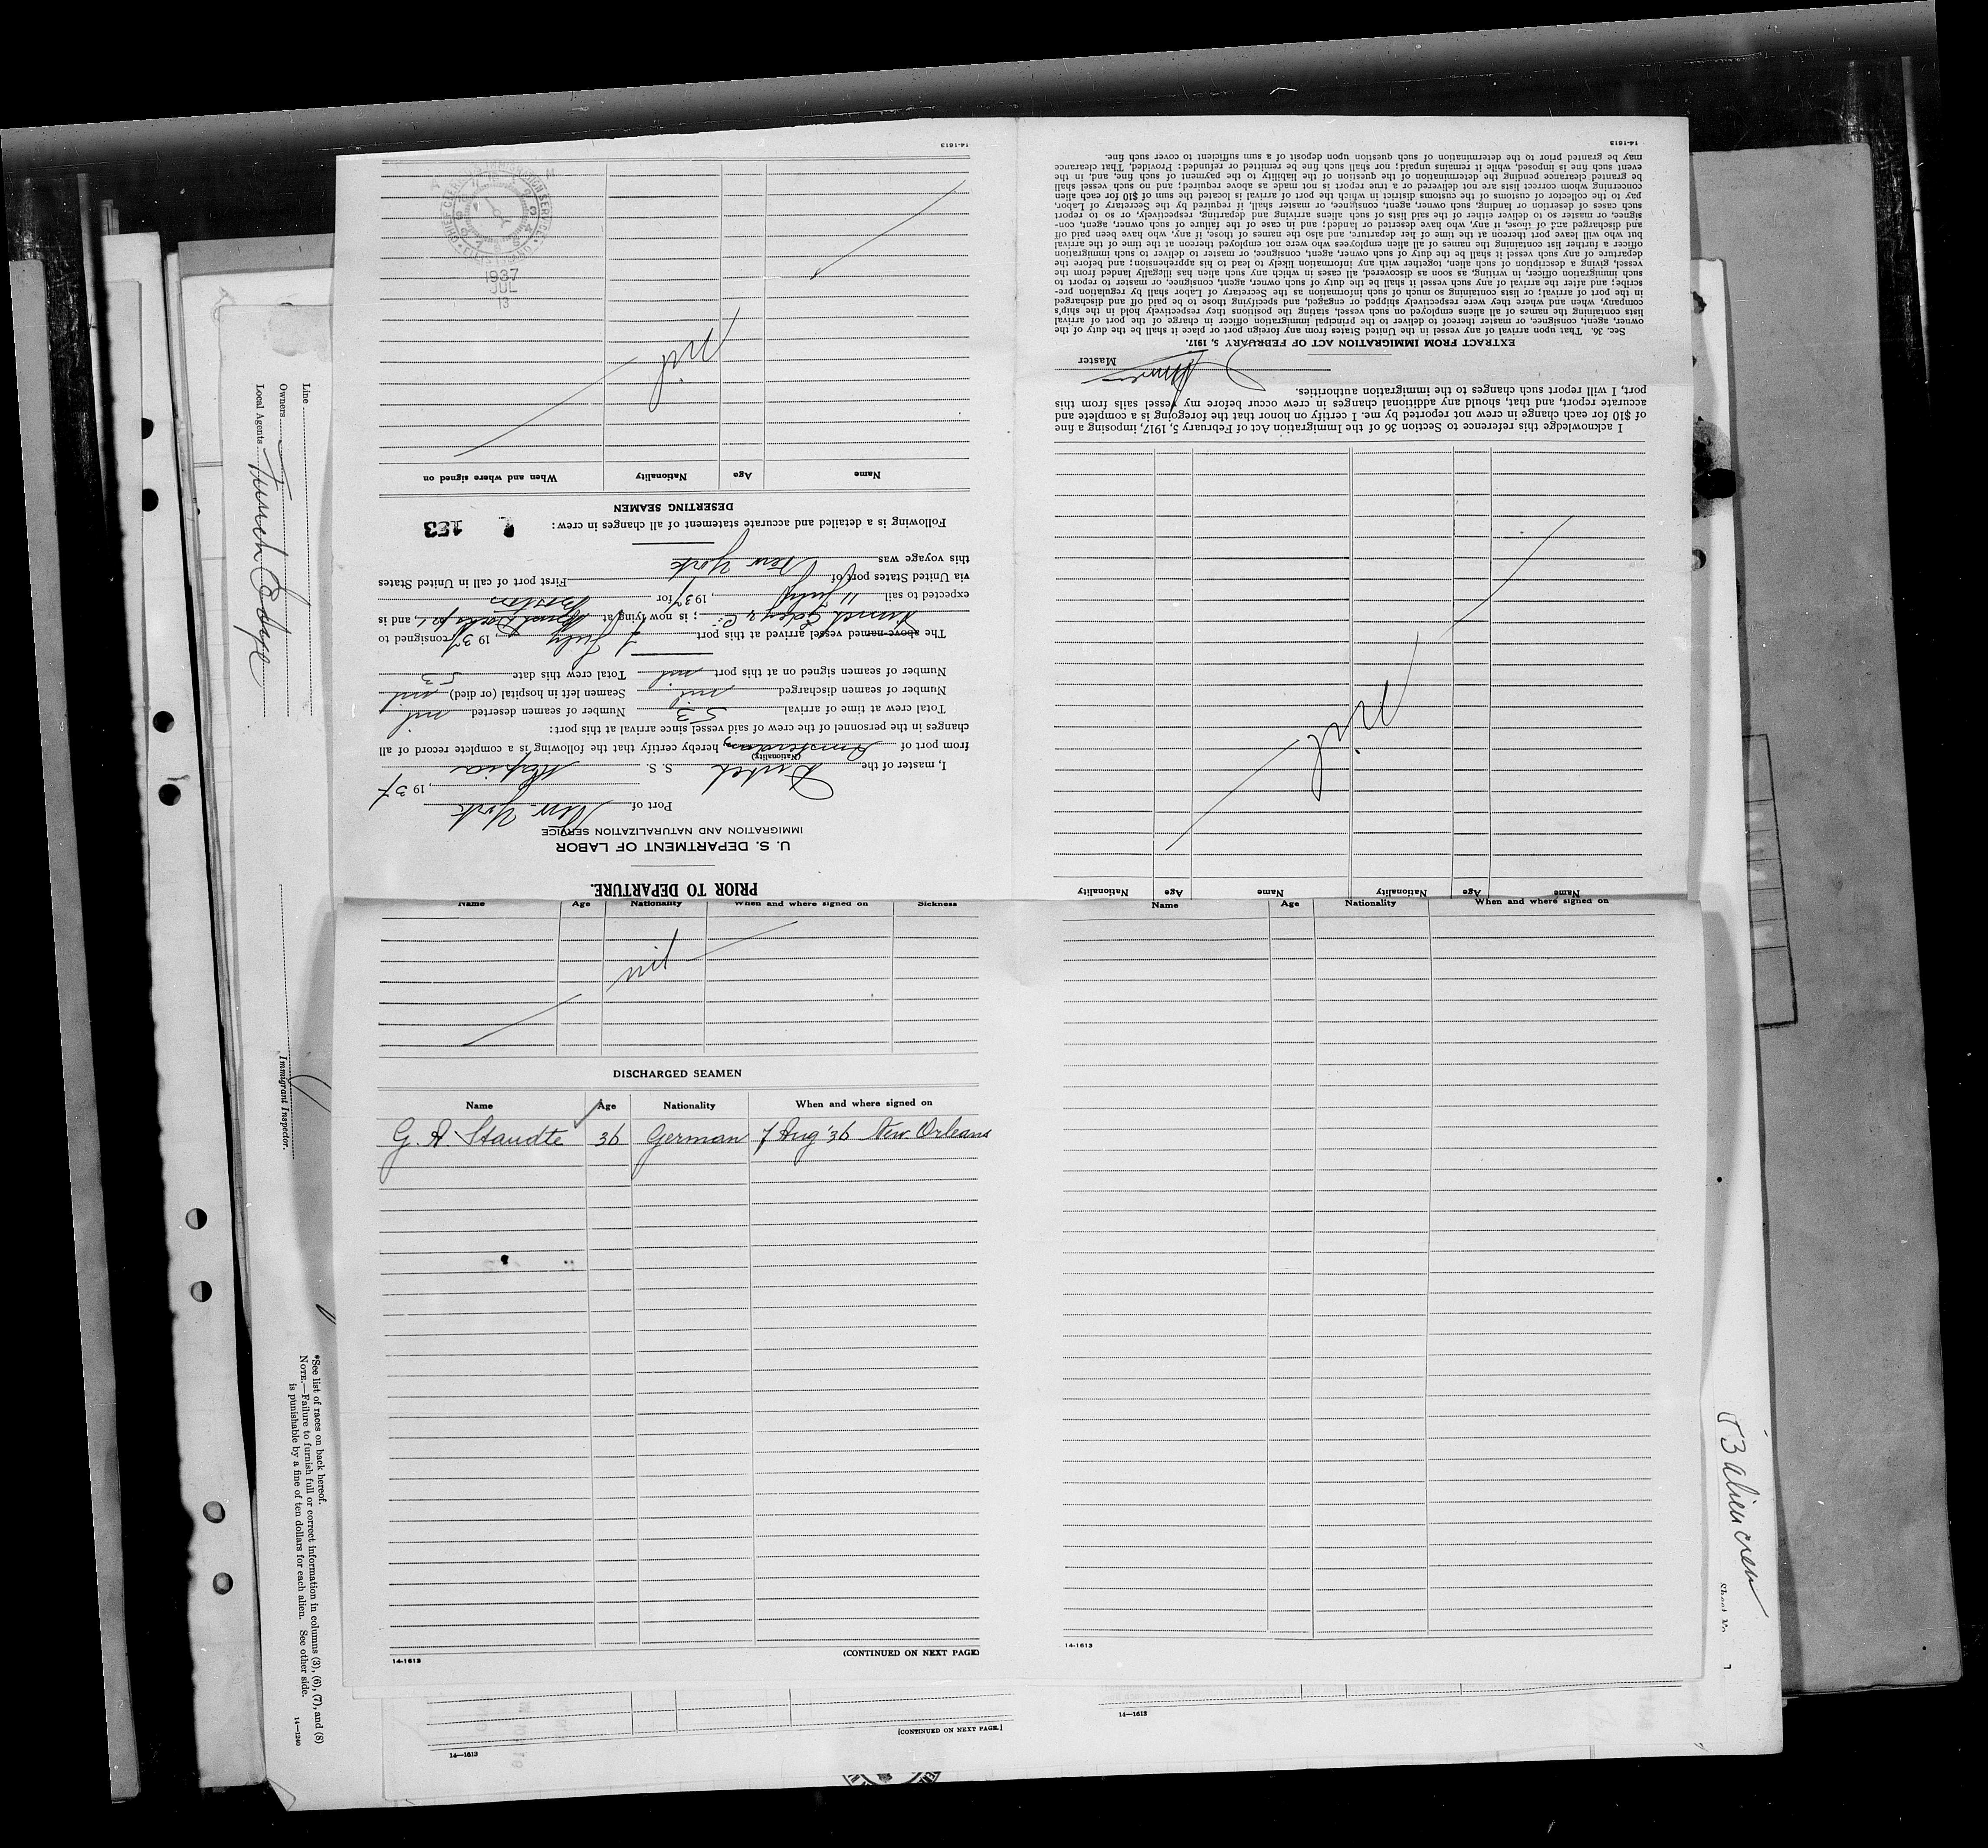 PRIOR TO DEPARTURE.
U. S. DEPARTMENT OF LABOR
IMMIGRATION AND NATURALIZATION SERVICE
Port of New York
, 1937
I, master of the Dutch S. S.
(Nationality)
from port of Amsterdam, hereby certify that the following is a complete record of all
changes in the personnel of the crew of said vessel since arrival at this port:
Total crew at time of arrival 53 Number of seamen deserted nil
Number of seamen discharged nil Seamen left in hospital (or died) nil
Number of seamen signed on at this port nil Total crew this date 53
The above-named vessel arrived at this port July 1937 consigned to
Funch Edye & Co.; is now lying at, and is
expected to sail 11 July, 1937 for Boston
via United States port of First port of call in United States
this voyage was New York
Following is a detailed and accurate statement of all changes in crew:
153
DESERTING SEAMEN
Name Age Nationality When and where signed on
nil
1937
JUL
13
14-1613
Name Age Nationality Name Age Nationality
nil
I acknowledge this reference to Section 36 of the Immigration Act of February 5, 1917, imposing a fine
of $10 for each change in crew not reported by me. I certify on honor that the foregoing is a complete and
accurate report, and that, should any additional changes in crew occur before my vessel sails from this
port, I will report such changes to the immigration authorities.
Master
EXTRACT FROM IMMIGRATION ACT OF FEBRUARY 5, 1917.
Sec. 36. That upon arrival of any vessel in the United States from any foreign port or place it shall be the duty of the
owner, agent, consignee, or master thereof to deliver to the principal immigration officer in charge of the port of arrival
lists containing the names of all aliens employed on such vessel, stating the positions they respectively hold in the ship's
company, when and where they were respectively shipped or engaged, and specifying those to be paid off and discharged
in the port of arrival; or lists containing so much of such information as the Secretary of Labor shall by regulation pre-
scribe; and after the arrival of any such vessel it shall be the duty of such owner, agent, consignee, or master to report to
such immigration officer, in writing, as soon as discovered, all cases in which any such alien has illegally landed from the
vessel, giving a description of such alien, together with any information likely to lead to his apprehension; and before the
departure of any such vessel it shall be the duty of such owner, agent, consignee, or master to deliver to such immigration
officer a further list containing the names of all alien employees who were not employed thereon at the time of the arrival
but who will leave port thereon at the time of her departure, and also the names of those, if any, who have been paid off
and discharged and of those, if any, who have deserted or landed; and in case of the failure of such owner, agent, con-
signee, or master so to deliver either of the said lists of such aliens arriving and departing, respectively, or so to report
such cases of desertion or landing, such owner, agent, consignee, or master shall, if required by the Secretary of Labor,
pay to the collector of customs of the customs district in which the port of arrival is located the sum of $10 for each alien
concerning whom correct lists are not delivered or a true report is not made as above required; and no such vessel shall
be granted clearance pending the determination of the question of the liability to the payment of such fine, and, in the
event such fine is imposed, while it remains unpaid; nor shall such fine be remitted or refunded: Provided, That clearance
may be granted prior to the determination of such question upon deposit of a sum sufficient to cover such fine.
14-1613
Name Age Nationality When and where signed on Sickness
nil
DISCHARGED SEAMEN
Name Age Nationality When and where signed on
G. A. Staudte 36 German 7 Aug '36 New Orleans
14-1613
(CONTINUED ON NEXT PAGE)
Name Age Nationality When and where signed on
14-1613
[CONTINUED ON NEXT PAGE.]
14—1613
14—1613
Line
Owners
Local Agents Funch Edye
Immigrant Inspector.
*See list of races on back hereof.
NOTE.—Failure to furnish full or correct information in columns (3), (6), (7), and (8)
is punishable by a fine of ten dollars for each alien. See other side.
14—1240
53 alien crew
Sheet No.